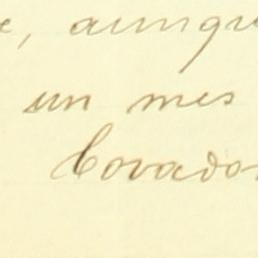 e, aunqu
un mes
Covado